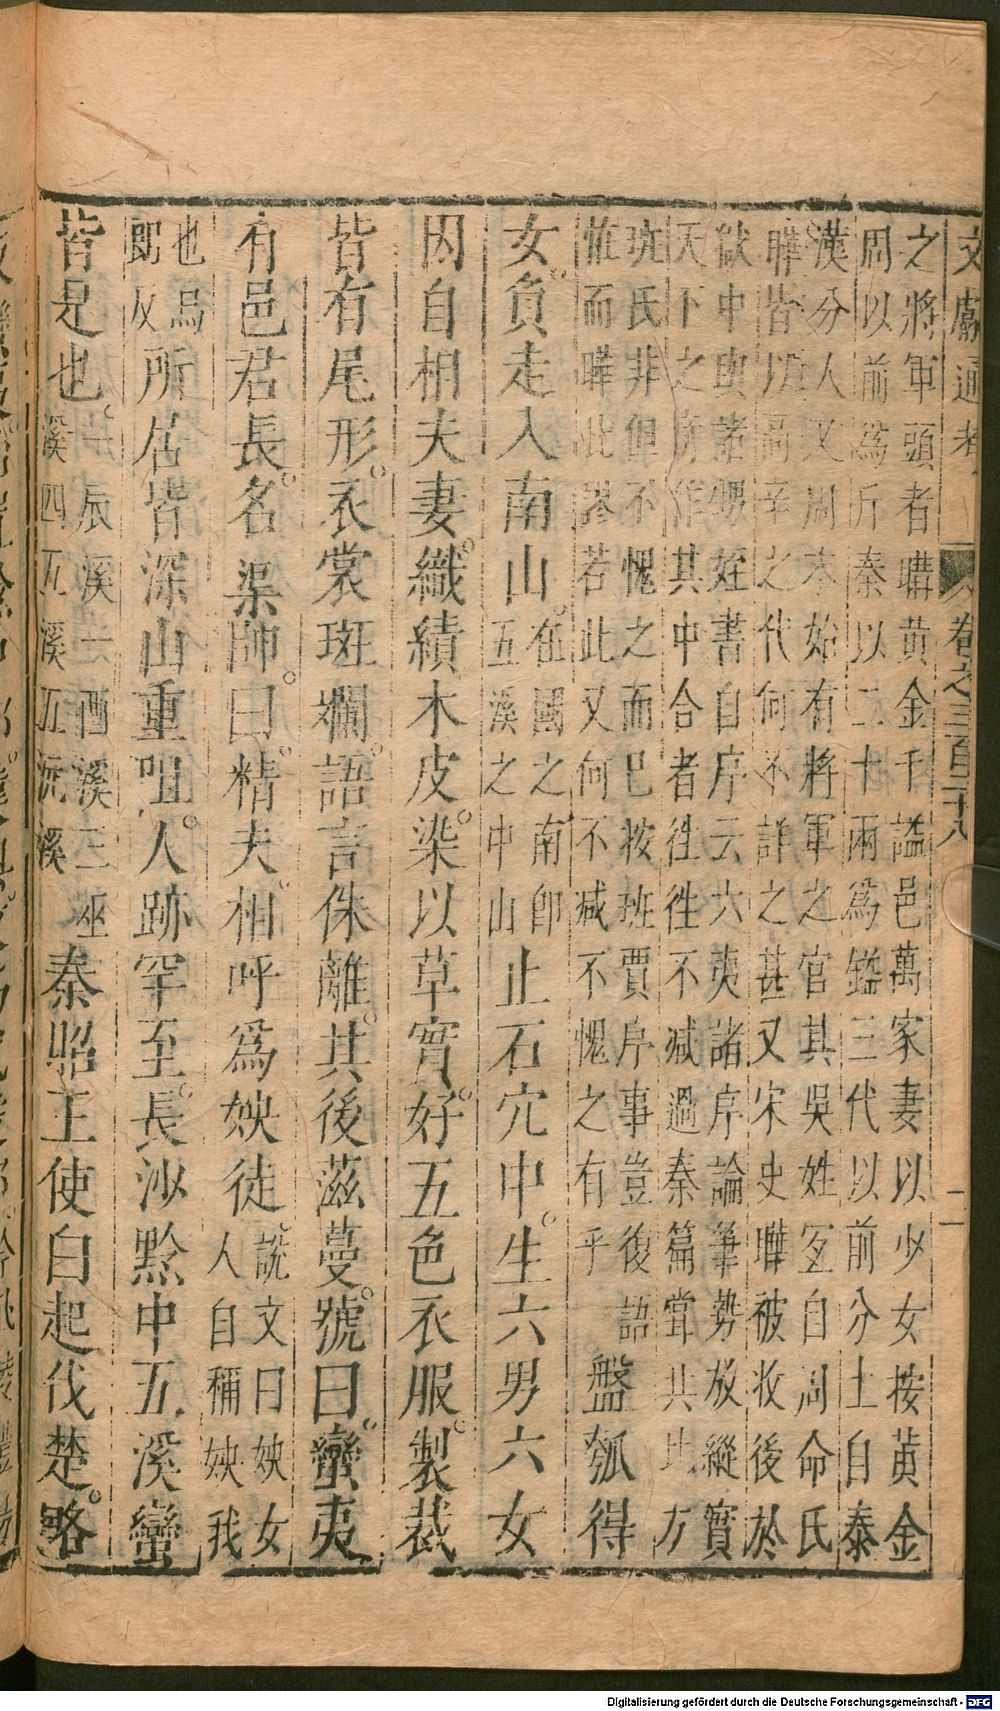 文獻通考 卷之三百二十八 二
之將軍頭者購黃金千謚邑萬家妻以少女按黃金
周以前為斤秦以二十兩為鎰三代以前分土自秦
漢分人又周末始有將軍之官其吳姓宜自周命氏
曄皆以高辛之代何不詳之甚又宋史曄被收後於
獄中與諸甥姪書自序云六夷諸序論筆勢放縱實
天下之奇作其中合者徃徃不減過秦篇甞共比方
班氏非但不愧之而巳按班賈序事豈復語
惟而曄此若此又何不減不愧之有乎
盤瓠得
女負走入南山
在國之南卽
五溪之中山
止石穴中生六男六女
因自相夫妻織績木皮染以草實好五色衣服製裁
皆有尾形衣裳斑斕語言侏離其後滋蔓號曰蠻夷
有邑君長名渠帥曰精夫相呼爲姎徒
說文曰姎女
人自稱姎我
也烏
郎反
所居皆深山重咀人跡罕至長沙黔中五溪蠻
皆是也
一辰溪二酉溪三巫
溪四溪五沅溪
秦昭王使白起伐楚略
Digitalisierung gefördert durch die Deutsche Forschungsgemeinschaft - DFG